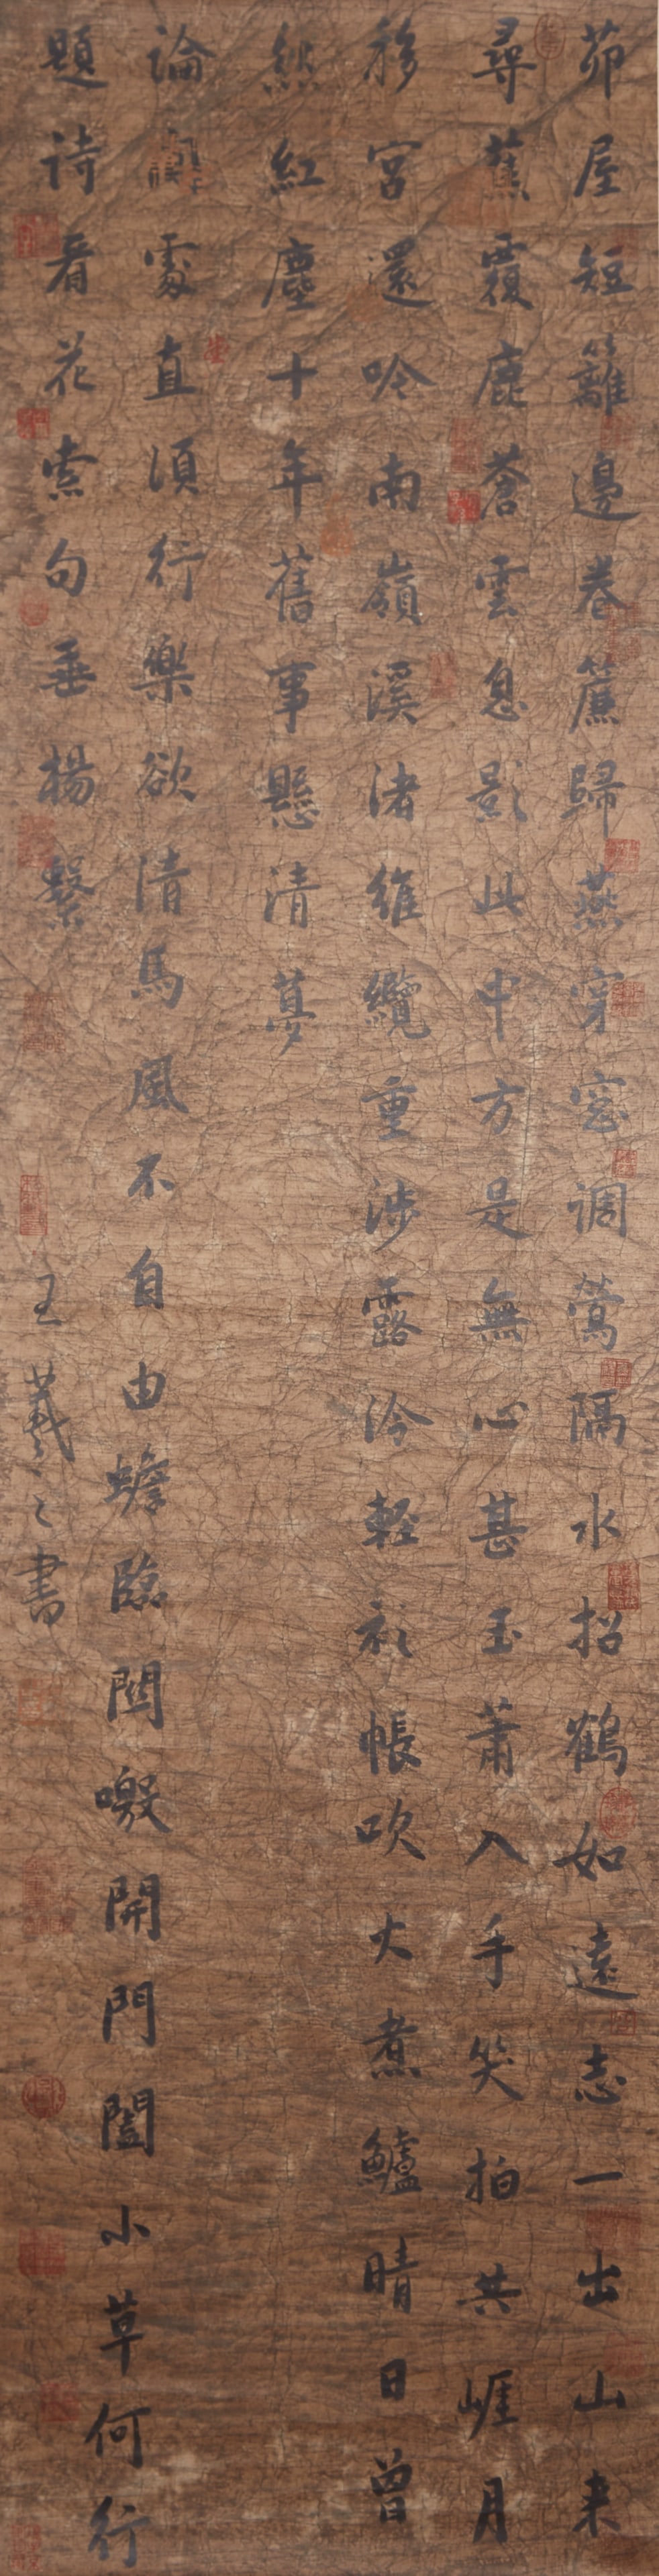 茆屋短籬邊卷簾歸燕穿窓调鶯隔水招鶴如遠志一出山来
尋蕉覆鹿蒼雲息影此中方是無心甚玉蕭入手笑拍共崕月
移宮還吟南嶺溪渚維纜重涉露泠輕衫帳吹火煮鱸晴日曾
紅塵十年舊事懸清夢
論處直須行樂欲清馬風不自由蟾臨開門闔小草何行
題詩看花索句垂楊繫
王羲之書